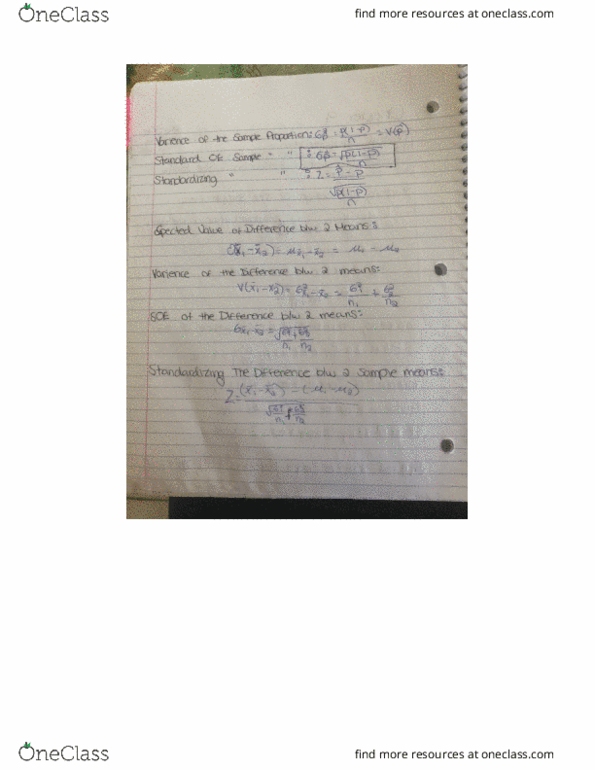 OneClass
find more resources at oneclass.com
Varience of the Sample Proportion: σ²p̂ = p(1-p)/n = V(p̂)
Standard OE Sample " " : σp̂ = √p(1-p)/n
Standardizing " " : Z = p̂ - p / √p(1-p)/n
Spected Value of Difference b/w 2 Means:
(x̄₁ - x̄₂) = μx̄₁ - x̄₂ = μ₁ - μ₂
Varience of the Difference b/w 2 means:
V(x̄₁ - x̄₂) = σ²x̄₁ - x̄₂ = σ²₁/n₁ + σ²₂/n₂
SOE of the Difference b/w 2 means:
σx̄₁ - x̄₂ = √σ²₁/n₁ + σ²₂/n₂
Standardizing The Difference b/w 2 Sample means:
Z = (x̄₁ - x̄₂) - (μ₁ - μ₂) / √σ²₁/n₁ + σ²₂/n₂
OneClass
find more resources at oneclass.com